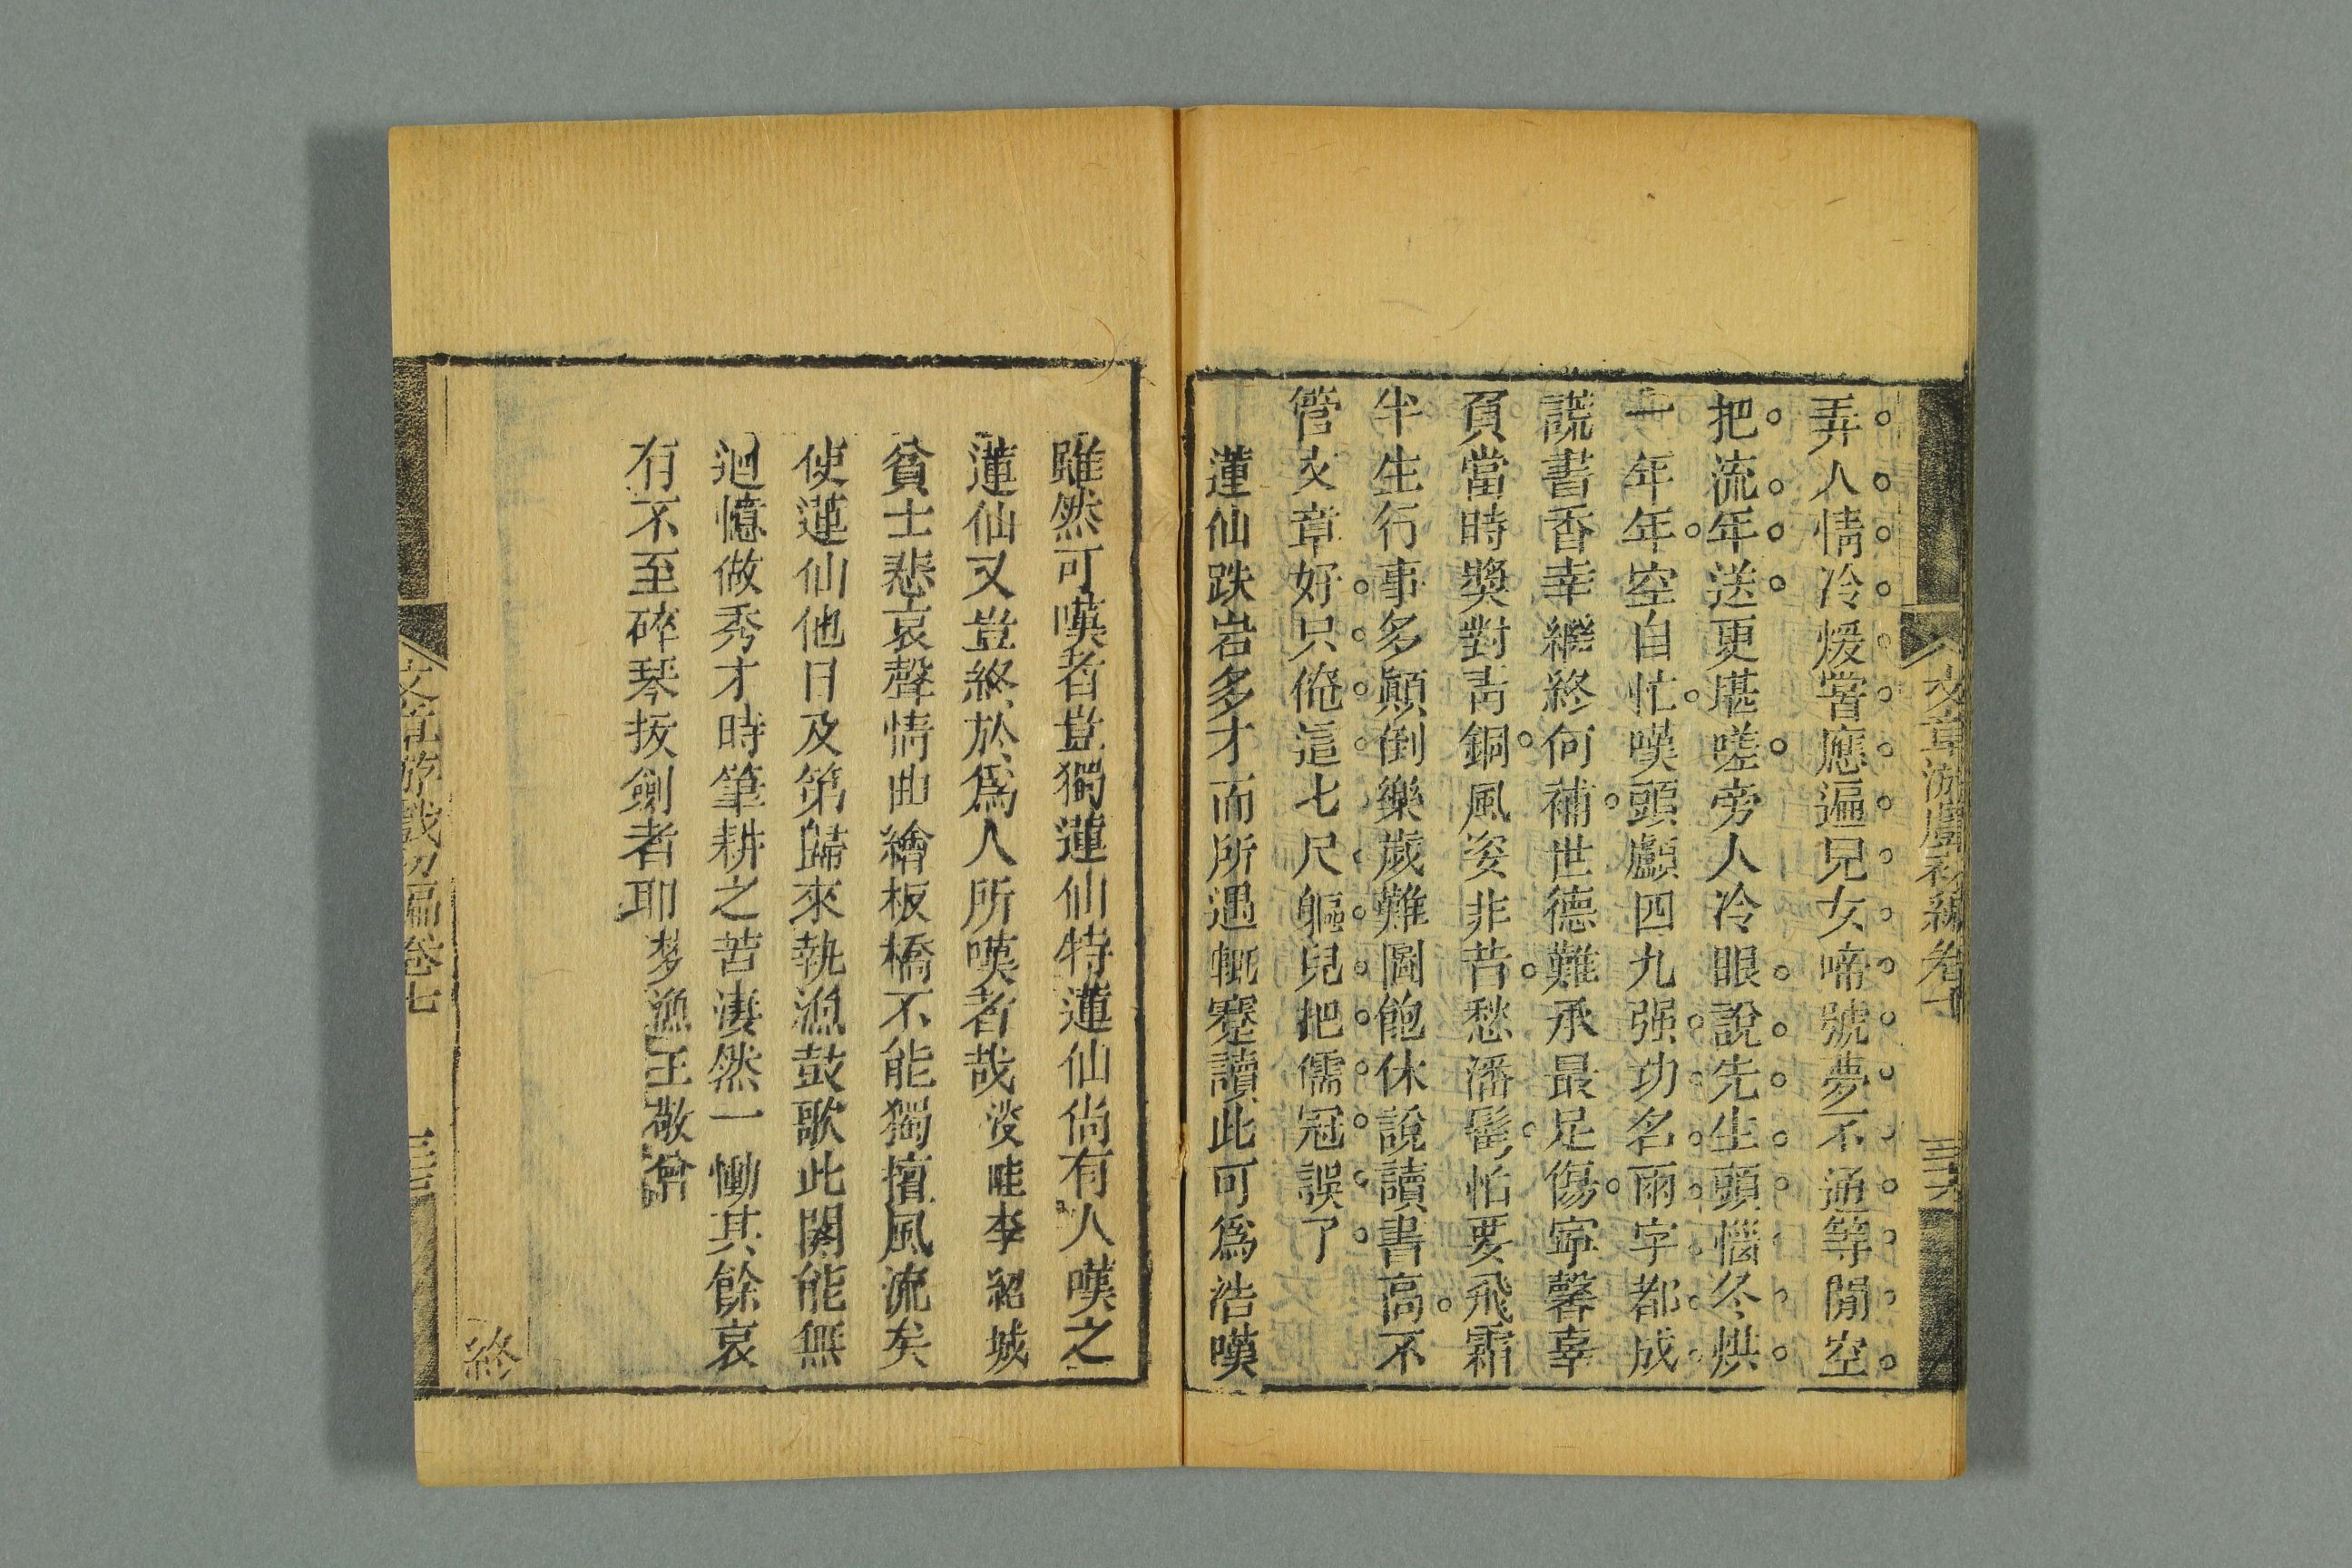 文章游戲初編卷七
三十六
弄人情冷煖嘗應遍兒女啼號夢不通等閒空
把流年送更堪嗟旁人冷眼說先生頭惱冬烘
一年年空自忙嘆頭顱四九强功名兩字都成
謊書香幸繼終何補世德難承最足傷寧馨辜
負當時獎對靑銅風姿非昔愁潘鬢怕要飛霜
半生行事多顛倒樂歲難圖飽休說讀書高不
管文章好只俺這七尺軀兒把儒冠誤了
蓮仙跌宕多才而所遇輒蹇讀此可爲浩嘆
雖然可嘆者豈獨蓮仙特蓮仙尙有人嘆之
蓮仙又豈終於爲人所嘆者哉 李紹城
貧士悲哀聲情曲繪板橋不能獨擅風流矣
使蓮仙他日及第歸來執漁鼓歌此闋能無
迴憶做秀才時筆耕之苦凄然一慟其餘哀
有不至碎琴拔劍者耶 梦漁王敬曾
終
文章游戲初編卷七